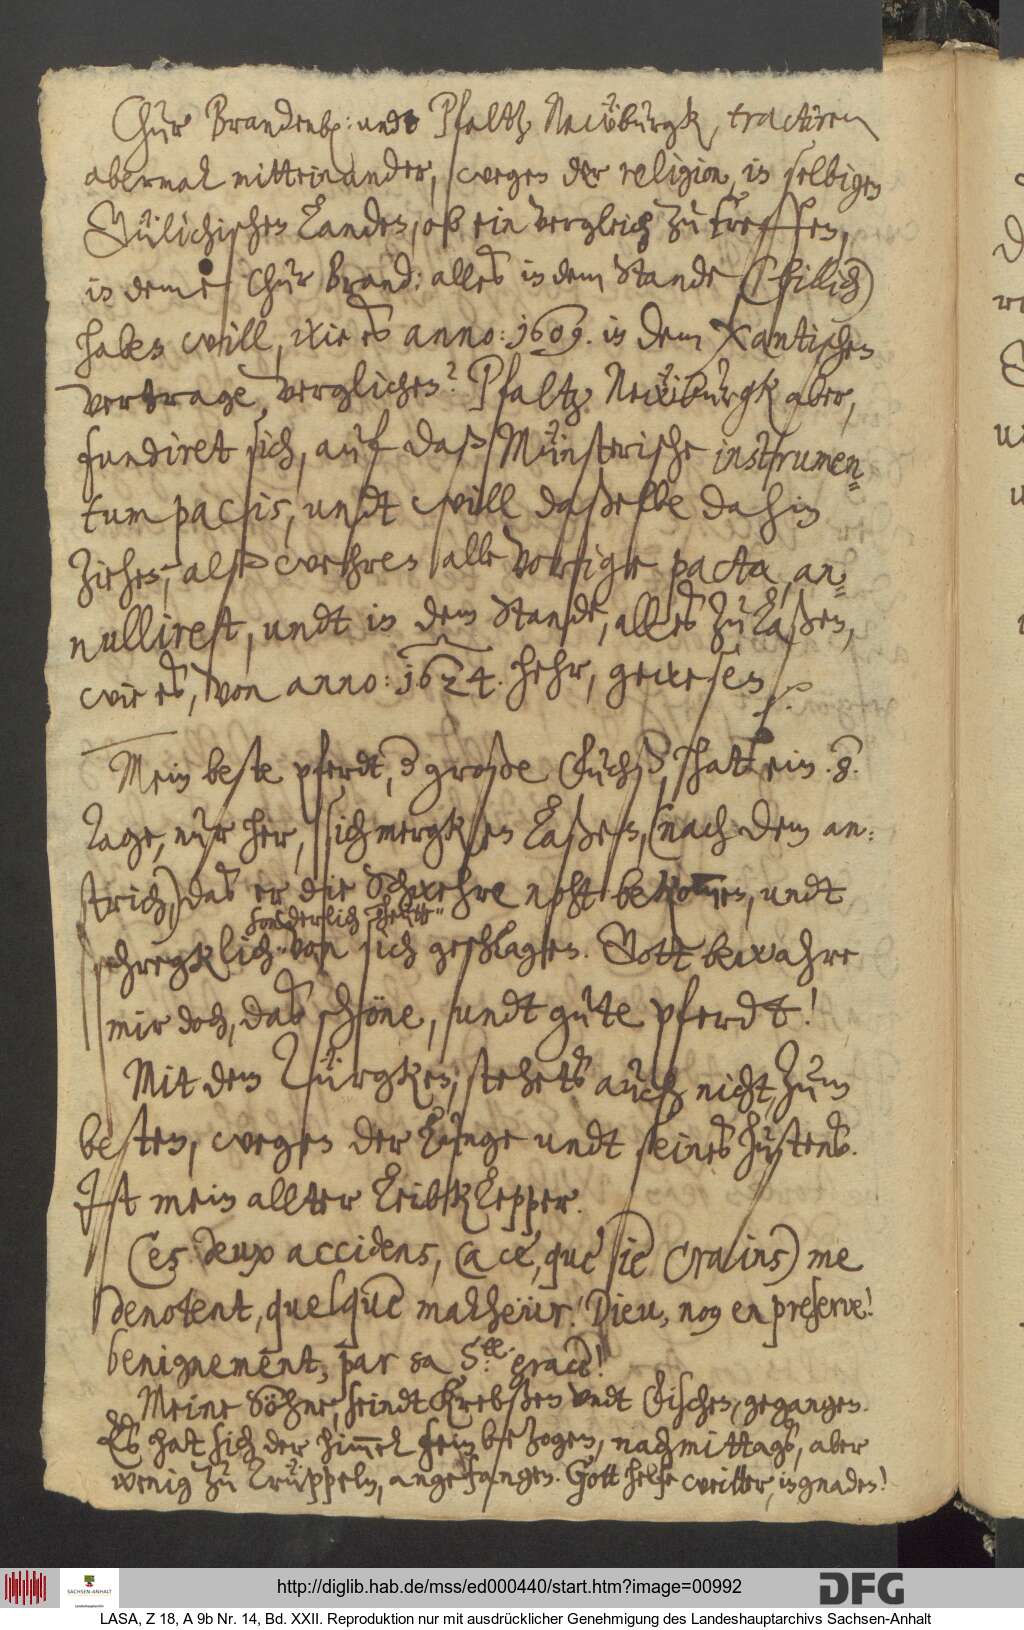 Chur Brandenb: undt Pfaltz Neẅburgk, tractiren
abermal mitteinander, wegen der religion, in selbigen
Gülichischen Landen, ob ein vergleich zu treffen,
in deme Chur Brand: alles in dem Stande (billich)
haben will, wie es anno: 1609. in dem Xantischen
vertrage, verglichen? Pfaltz Neẅburgk aber,
fundiret sich, auf daß Münsterische instrumen=
tum pacis, undt will daßelbe dahin
ziehen, alß wehren alle vorige pacta, an=
nulliret, undt in dem Stande, alles zu laßen,
wie es, von anno: 1624. hehr, gewesen p.
Mein beste pferdt, d große Fuchß, hatt ein .8.
Tage, nur her, sich mergken laßen, (nach dem an=
strich,) das er die Schwehre noht bekommen, undt
sonderlich heütte
schregklich von sich geschlagen. Gott bewahre
mir doch, das schöne, undt gute pferdt!
Mit dem Türgken, stehets auch nicht, zum
besten, wegen der Lunge undt seines hustens.
Ist mein allter Leibklepper.
Ces deux accidens, (a ce, que je crains) me
denotent, quelque malheur! Dieu, nous en preserve!
benignement, par sa Ste: grace!
Meine Söhne, seindt Krebßen undt Fischen, gegangen.
Es hat sich der himmel fein bezogen, nachmittags, aber
wenig zu trüppeln, angefangen. Gott helfe weitter, in gnaden!
http://diglib.hab.de/mss/ed000440/start.htm?image=00992
SACHSEN-ANHALT
DFG
LASA, Z 18, A 9b Nr. 14, Bd. XXII. Reproduktion nur mit ausdrücklicher Genehmigung des Landeshauptarchivs Sachsen-Anhalt